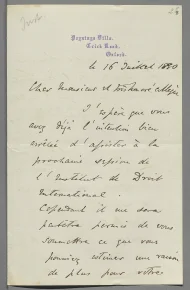 Villa.
le 16 Juillet 1880
Cher Monsieur et
J'espère que vous
avez déjà l'intention bien
arrêtée d'assister à la
prochaine session de
l'Institut de Droit
International.
Cependant il me sera
permis de vous
soumettre ce que vous
pourriez estimer une raison
de plus pour votre